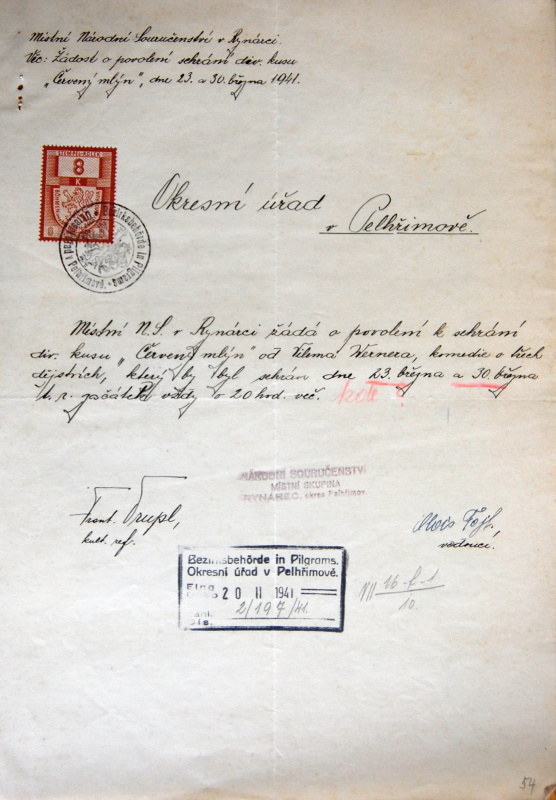 Místní Národní Souručenství v Rynárci.
Věc: Žádost o povolení sehrání div. kusu
„Červený mlýn", dne 23. a 30. března 1941.
8
K
Okresní úřad
v Pelhřimově.
Místní N.S. v Rynárci žádá o povolení k sehrání
div. kusu „Červený mlýn" od Viléma Wernera, komedie o třech
dějstvích, který by byl sehrán dne 23. března a 30. března
t. r. začátek vždy o 20 hod. več. kde ?
NÁRODNÍ SOURUČENSTVÍ
MÍSTNÍ SKUPINA
RYNÁREC, okres Pelhřimov
Frant. Trupl,
kult. ref.
Alois
vedoucí.
Bezirksbehörde in Pilgrams.
Okresní úřad v Pelhřimově.
Eing 20 II 1941
2/197/41.
VII 16-f-1
10.
54